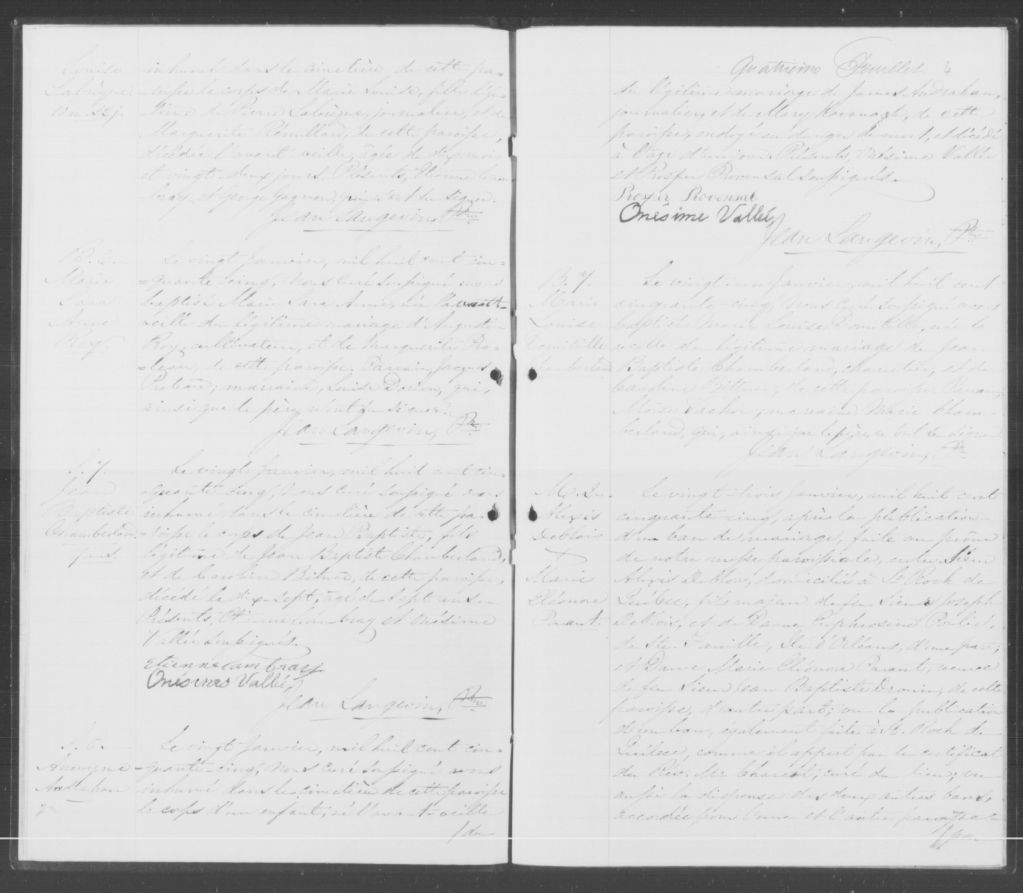 Louise
Labrègue
inhumé dans le cimetière de cette pa-
roisse le corps de Marie Louise, fille légi-
time de Pierre Labrègue, journalier, et de
Marguerite Rouillard, de cette paroisse,
décédée l'avant veille, âgée de dix mois
et vingt deux jours. Présents, Etienne Lam-
bray et George Gagnon, qui n'ont su signer.
Jean Langevin, Ptre
B. 6.
Marie
Sara
Anne
Roy.
Le vingt Janvier, mil huit cent cin-
quante cinq, Nous curé soussigné avons
baptisé Marie Sara Anne, née l'avant-
veille du légitime mariage d'Augustin
Roy, cultivateur, et de Marguerite
de cette paroisse. Parrain, Jacques
marraine, Louise qui,
ainsi que le père, n'ont su signer.
Jean Langevin, Ptre
S. 7
Jean
Baptiste
Chamberland
7 ans
Le vingt Janvier, mil huit cent cin-
quante cinq, Nous curé soussigné avons
inhumé dans le cimetière de cette par-
oisse le corps de Jean Baptiste, fils
légitime de Jean Baptiste Chamberland,
et de Caroline Bittner, de cette paroisse,
décédé le dix-sept, âgé de sept ans.
Présents, Etienne Lambray et Onésime
Vallée soussignés.
Etienne Lambray
Onésime Vallée,
Jean Langevin, Ptre
Anonyme
Le vingt Janvier, mil huit cent cin-
quante-cinq, Nous curé soussigné avons
inhumé dans le cimetière de cette paroisse
le corps d'un enfant, né l'avant-veille
/du
Quatrième Feuillet 4
du légitime mariage de James
journalier, et de Mary Kavanagh, de cette
paroisse, ondoyé en danger de mort, et décédé
à l'age d'un jour. Présents, Onésime Vallée
et Prosper Provensal soussignés.
Prosper Provensal
Onésime Vallée,
Jean Langevin, Ptre
B. 7.
Marie
Louise
Domitille
Chamberland
Le vingt un Janvier, mil huit cent
cinquante cinq, Nous curé soussigné avons
baptisé Marie Louise Domitille, née la
veille du légitime mariage de Jean
Baptiste Chamberland, charretier, et de
Caroline Bittner, de cette paroisse. Parrain,
Moïse Vachon; marraine Marie Cham-
berland, qui, ainsi que le père, n'ont su signer.
Jean Langevin, Ptre
M. 2.
Alexis
Deblois
&
Marie
Eléonore
Parant.
Le vingt-trois Janvier, mil huit cent
cinquante-cinq, après la publication
d'un ban de mariage, faite au prône
de notre messe paroissiale, entre Sieur
Alexis Deblois, domicilié à St Roch de
Québec, fils majeur de feu Sieur Joseph
Deblois, et de Dame Euphrosine
de Ste Famille, Ile d'Orléans, d'une part;
et Dame Marie Eléonore Parant, veuve
de feu Sieur Jean Baptiste Drouin, de cette
paroisse, d'autre part; vu la publication
d'un ban, également faite à St Roch de
Québec, comme il appert par le certificat
du Rév. Mr Charest, curé du lieu; vu
aussi la dispense des deux autres bans,
accordée pour l'une et l'autre paroisse
/par